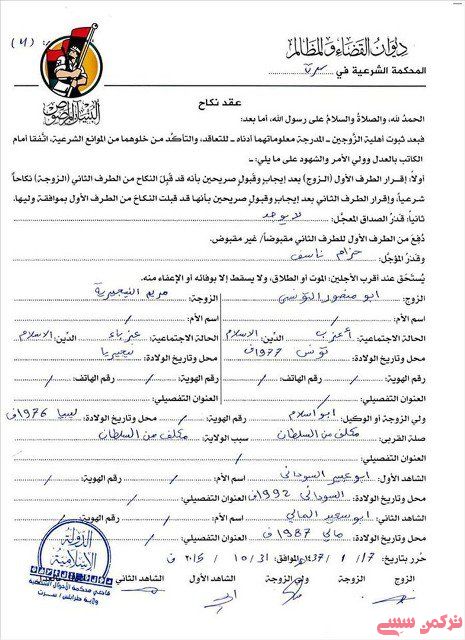 ديوان القضاء والمظالم
المحكمة الشرعية في سرت
البنيان المرصوص
عقد نكاح
الحمدُ لله، والصلاةُ والسلامُ على رسول الله، أما بعد:
فبعد ثبوت أهلية الزوجين - المدرجة معلوماتهما أدناه - للتعاقد، والتأكد من خلوهما من الموانع الشرعية، اتفقا أمام
الكاتب بالعدل وولي الأمر والشهود على ما يلي:
أولاً: إقرار الطرف الأول (الزوج) بعد إيجاب وقبول صريحين بأنه قد قبل النكاح من الطرف الثاني (الزوجة) نكاحاً
شرعياً، وإقرار الطرف الثاني بعد إيجاب وقبول صريحين بأنها قد قبلت النكاح من الطرف الأول بموافقة وليها.
ثانياً: قدر الصداق المعجل: لا يوجد
دفع من الطرف الأول للطرف الثاني مقبوضاً/ غير مقبوض.
وقدر المؤجل: حزام ناسف
يُستحق عند أقرب الأجلين: الموت أو الطلاق، ولا يسقط إلا بوفائه أو الإعفاء منه.
الزوج: ابو منصور التونسي الزوجة: مريم النيجيرية
اسم الأم: / اسم الأم: /
الحالة الاجتماعية: أعزب الدين: الاسلام الحالة الاجتماعية: عزباء الدين: الاسلام
محل وتاريخ الولادة: تونس 1977ف محل وتاريخ الولادة: نيجيريا
رقم الهوية: / رقم الهاتف: / رقم الهوية: / رقم الهاتف: /
العنوان التفصيلي: العنوان التفصيلي: /
ولي الزوجة أو الوكيل: ابو اسلام رقم الهوية: / محل وتاريخ الولادة: ليبيا 1976ف
صلة القربى: مكلف من السلطان سبب الولاية: مكلف من السلطان
العنوان التفصيلي: /
الشاهد الأول: ابو عبير السوداني اسم الأم: / رقم الهوية: /
محل وتاريخ الولادة: السوداني 1992ف العنوان التفصيلي: /
الشاهد الثاني: ابو سعيد المالي اسم الأم: / رقم الهوية: /
محل وتاريخ الولادة: مالي 1987ف العنوان التفصيلي: /
حُرر بتاريخ: 17/ 1 /1437 الموافق: 31/ 10/ 2015 ف
الزوج الزوجة ولي الزوجة الشاهد الأول الشاهد الثاني
الدولة
الإسلامية
قاضي محكمة الأحوال الشخصية
ولاية طرابلس / سرت
تركمن سيسي